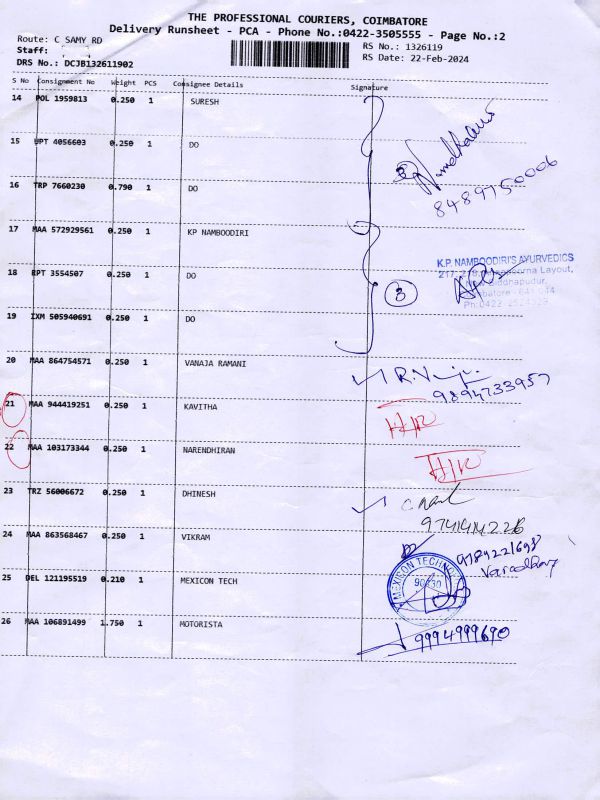 THE PROFESSIONAL COURIERS, COIMBATORE
Delivery Runsheet - PCA - Phone No.:0422-3505555 - Page No.:2
Route: C SAMY RD
RS No.: 1326119
Staff:
RS Date: 22-Feb-2024
DRS No.: DCJB132611902
S No Consignment No Weight PCS Consignee Details Signature
14 POL 1959813 0.250 1 SURESH
15 UPT 4056603 0.250 1 DO
8489750006
16 TRP 7660230 0.790 1 DO
17 MAA 572929561 0.250 1 KP NAMBOODIRI
K.P. NAMBOODIRI'S AYURVEDICS
18 RPT 3554507 0.250 1 DO
3
19 IXM 505940691 0.250 1 DO
20 MAA 864754571 0.250 1 VANAJA RAMANI
9894733957
21 MAA 944419251 0.250 1 KAVITHA
22 MAA 103173344 0.250 1 NARENDHIRAN
23 TRZ 56006672 0.250 1 DHINESH
9741414226
24 MAA 863568467 0.250 1 VIKRAM
25 DEL 121195519 0.210 1 MEXICON TECH
MEXICON TECHNO
26 MAA 106891499 1.750 1 MOTORISTA
9994999690